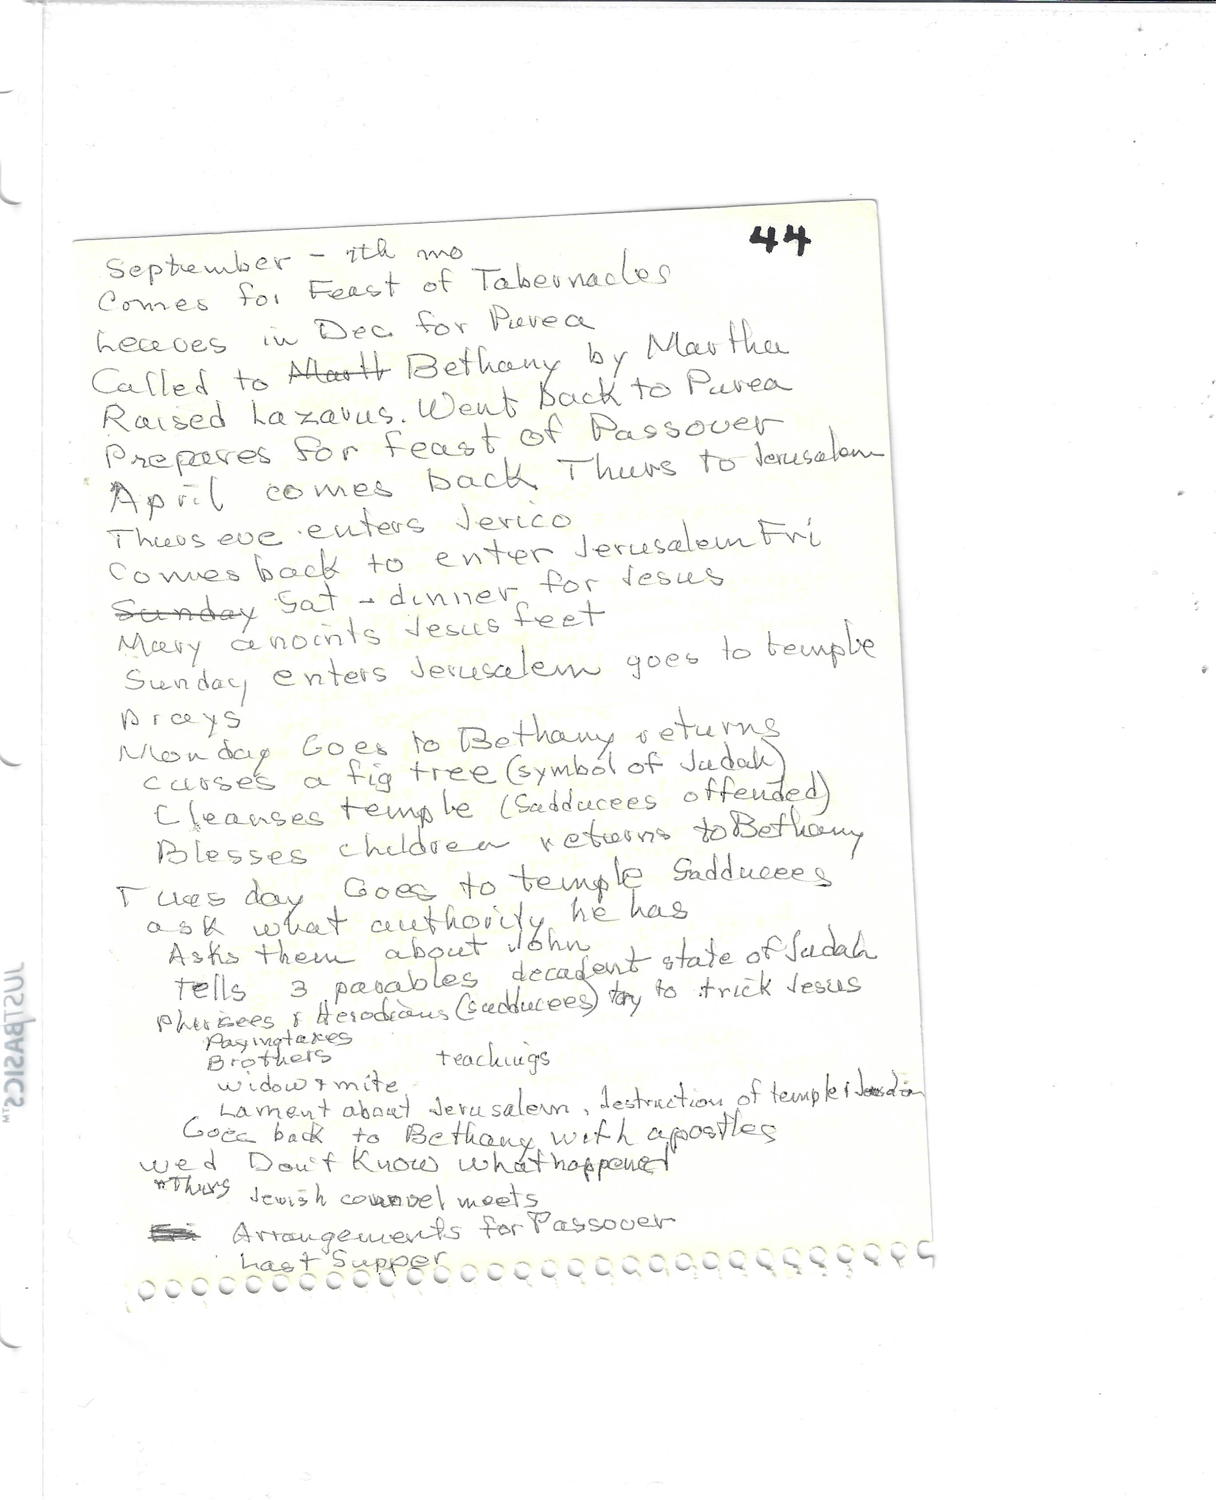 44
September - 7th mo
Comes for Feast of Tabernacles
Leaves in Dec. for Purea
Called to Martt Bethany by Martha
Raised Lazarus. Went back to Purea
Prepares for feast of Passover
April comes back Thurs to Jerusalem
Thurs eve enters Jerico
Comes back to enter Jerusalem Fri
Sunday Sat - dinner for Jesus
Mary anoints Jesus feet
Sunday enters Jerusalem goes to temple
prays
Monday Goes to Bethany returns
curses a fig tree (symbol of Judah)
Cleanses temple (Sadducees offended)
Blesses children returns to Bethany
Tuesday Goes to temple Sadducees
ask what authority he has
Asks them about John
tells 3 parables decadent state of Judah
Pharisees & Herodians (sadducees) try to trick Jesus
Paying taxes
Brothers teachings
widow & mite
Lament about Jerusalem, destruction of temple &
Goes back to Bethany with apostles
Wed Don't Know what happened
*Thurs Jewish counvel meets
Arrangements for Passover
Last Supper
JUSTBASICS™